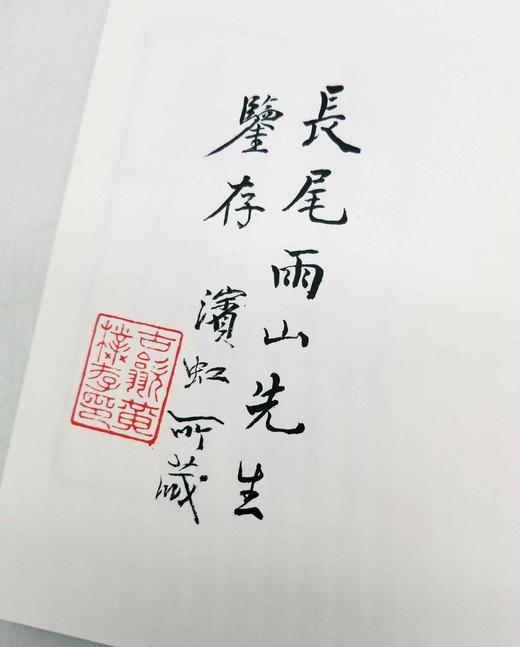 長尾雨山先生
鑒存
濱虹所藏
古歙黄
樸存印